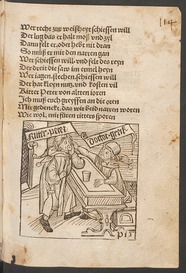 Wer recht zuo weißheit schiessen will
Der lůg das er halt moß vnd zyl
Dann felt er, oder hebt nit dran
So muß er mit den narren gan
Wer schiessen will, vnd felt des reyn
Der dreit die saw im ermel heyn
Wer jagen, stechen, schiessen will
Der hat kleyn nutz, vnd kosten vil
Ritter Peter von alten joren
Ich muß euch gryffen an die oren
Mir gedenckt, das wir beid narren woren
Wie wol, mir füren ritters sporen
Ritter peter
Doctor greiff